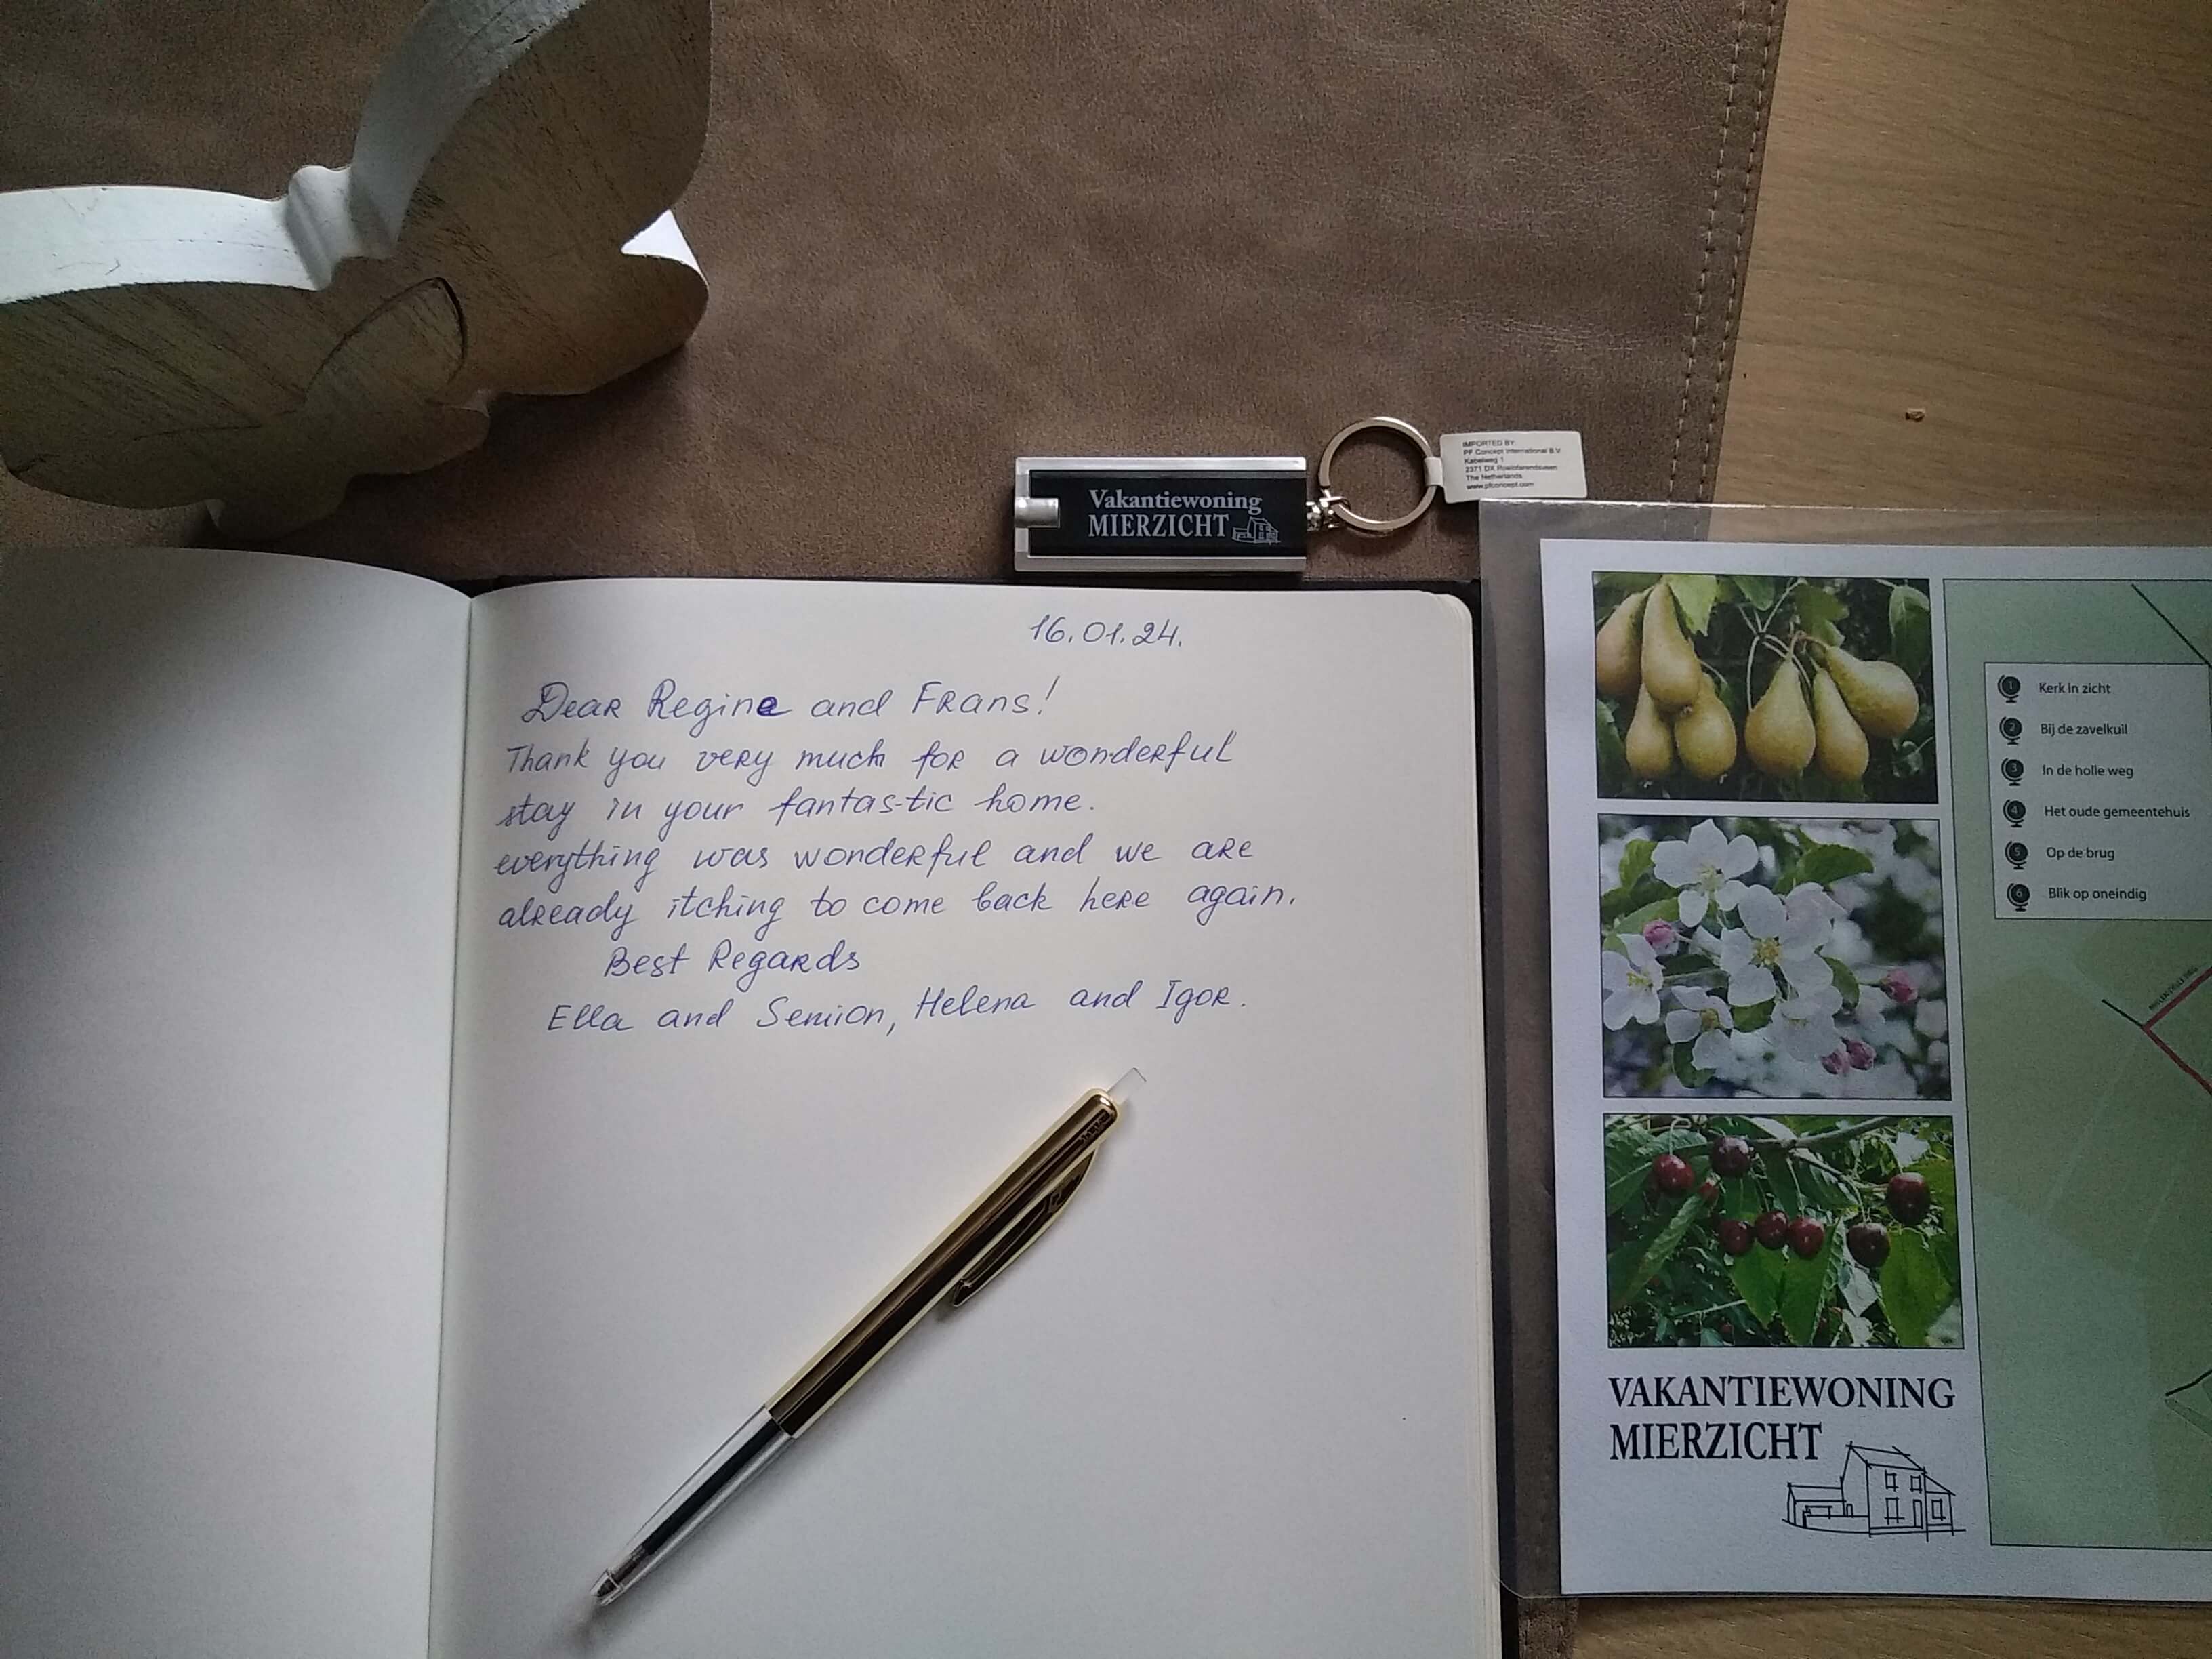 Vakantiewoning
MIERZICHT
IMPORTED BY:
PF Concept International B.V.
Kabelweg 1
2371 DX Roelofarendsveen
The Netherlands
www.pfconcept.com
16.01.24.
Dear Regine and Frans!
Thank you very much for a wonderful
stay in your fantas-tic home.
everything was wonderful and we are
already itching to come back here again.
Best Regards
Ella and Semion, Helena and Igor.
1 Kerk in zicht
2 Bij de zavelkuil
3 In de holle weg
4 Het oude gemeentehuis
5 Op de brug
6 Blik op oneindig
VAKANTIEWONING
MIERZICHT